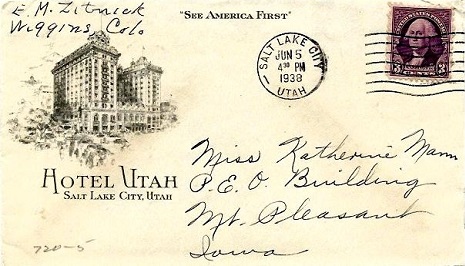 E. M. Zitnick
Wiggins, Colo
"SEE AMERICA FIRST"
SALT LAKE CITY
JUN 5
4 30 PM
1938
UTAH
UNITED STATES POSTAGE
3 CENTS 3
HOTEL UTAH
SALT LAKE CITY, UTAH
Miss Katherine Mann
P.E.O. Building
Mt. Pleasant
Iowa
720-5